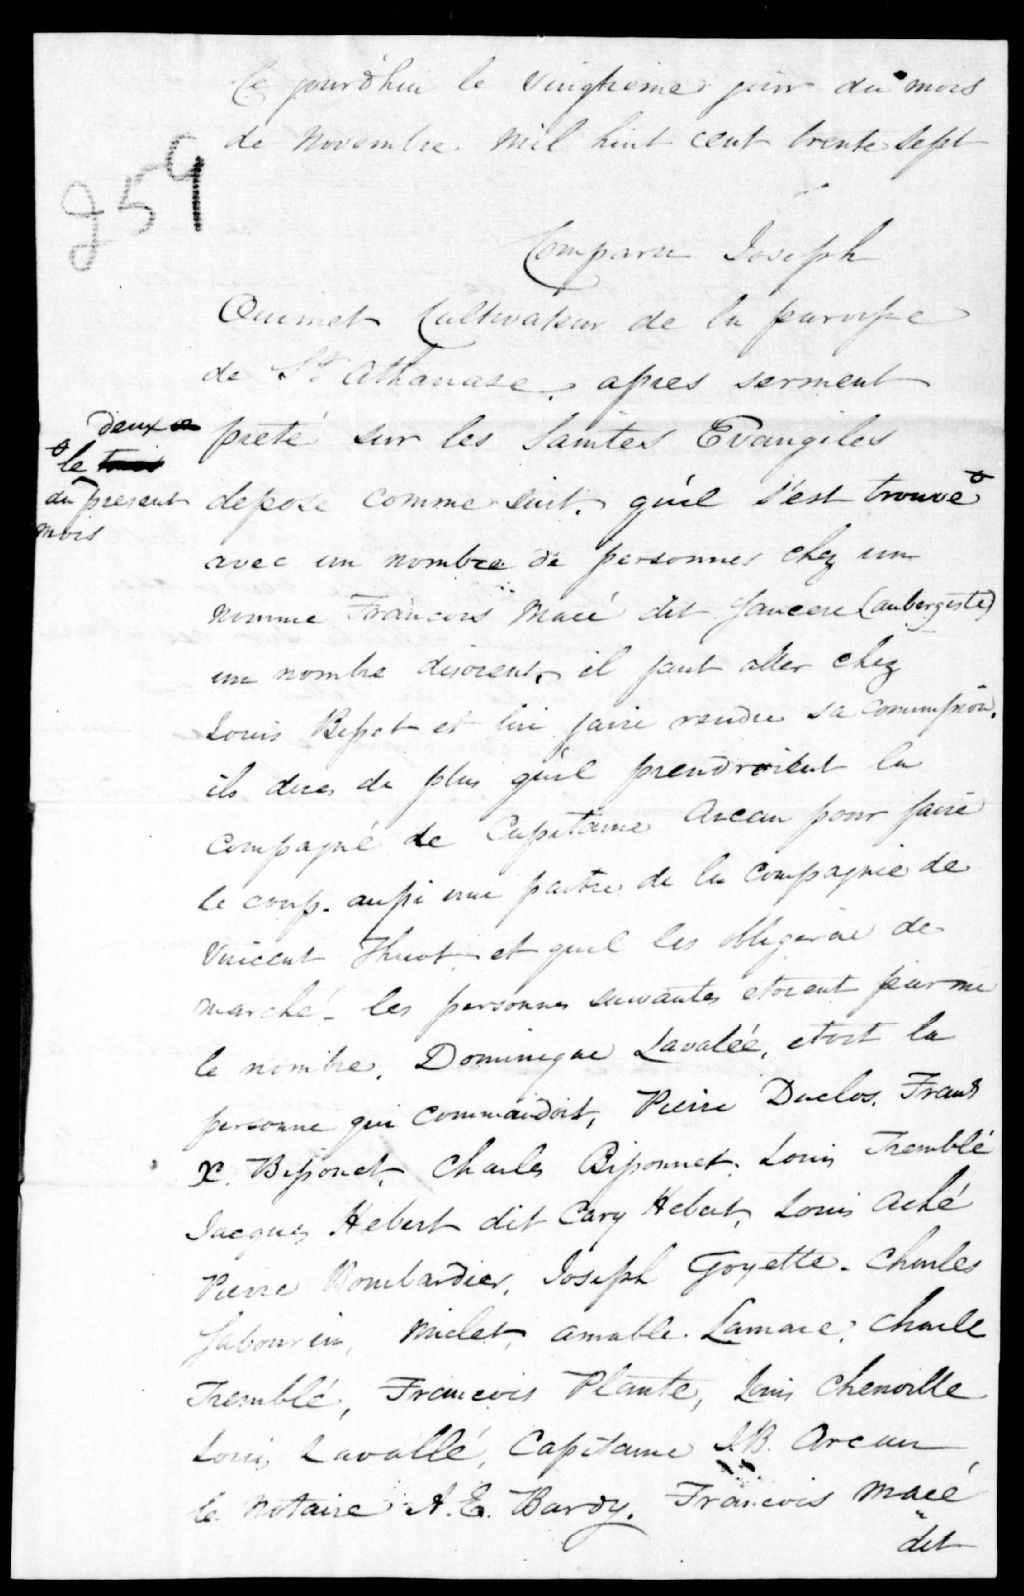 Ce jourdhui le vingtieme jour du mois
de Novembre mil huit cent trente sept
259
Comparu Joseph
Ouimet Cultivateur de la paroisse
de St Athanase, apres serment
preté sur les Saintes Evangiles
deux
le trois
du present
mois
depose comme suit. qu'il s'est trouvé
avec un nombre de personnes chez un
nomme Francois Macé dit (aubergiste)
un nombre disoient, il faut aller chez
Louis Bisset et lui faire rendre sa commission.
ils dires de plus qu'il prendroitent la
compagné de Capitaine Arcan pour faire
le coup. aussi une partie de la Compagnie de
Vincent Huot et quil les obligerai de
marché - les personnes suivantes etoient parmi
le nombre, Dominique Lavalée, etoit la
personne qui commandoit, Pierre Duclos, Frans
X. Bissonet, Charles Bissonnet, Louis Tremblé
Jacques Hebert dit Cary Hebert, Louis Aché
Pierre Bombardier, Joseph Goyette. Charles
Sabourin, Miclet, amable Lamare, Charle
Tremblé, Francois Plante, Louis Chenoille
Louis Lavallé, Capitaine J.B. Arcan
le Notaire A. E. Bardy, Francois Macé
dit